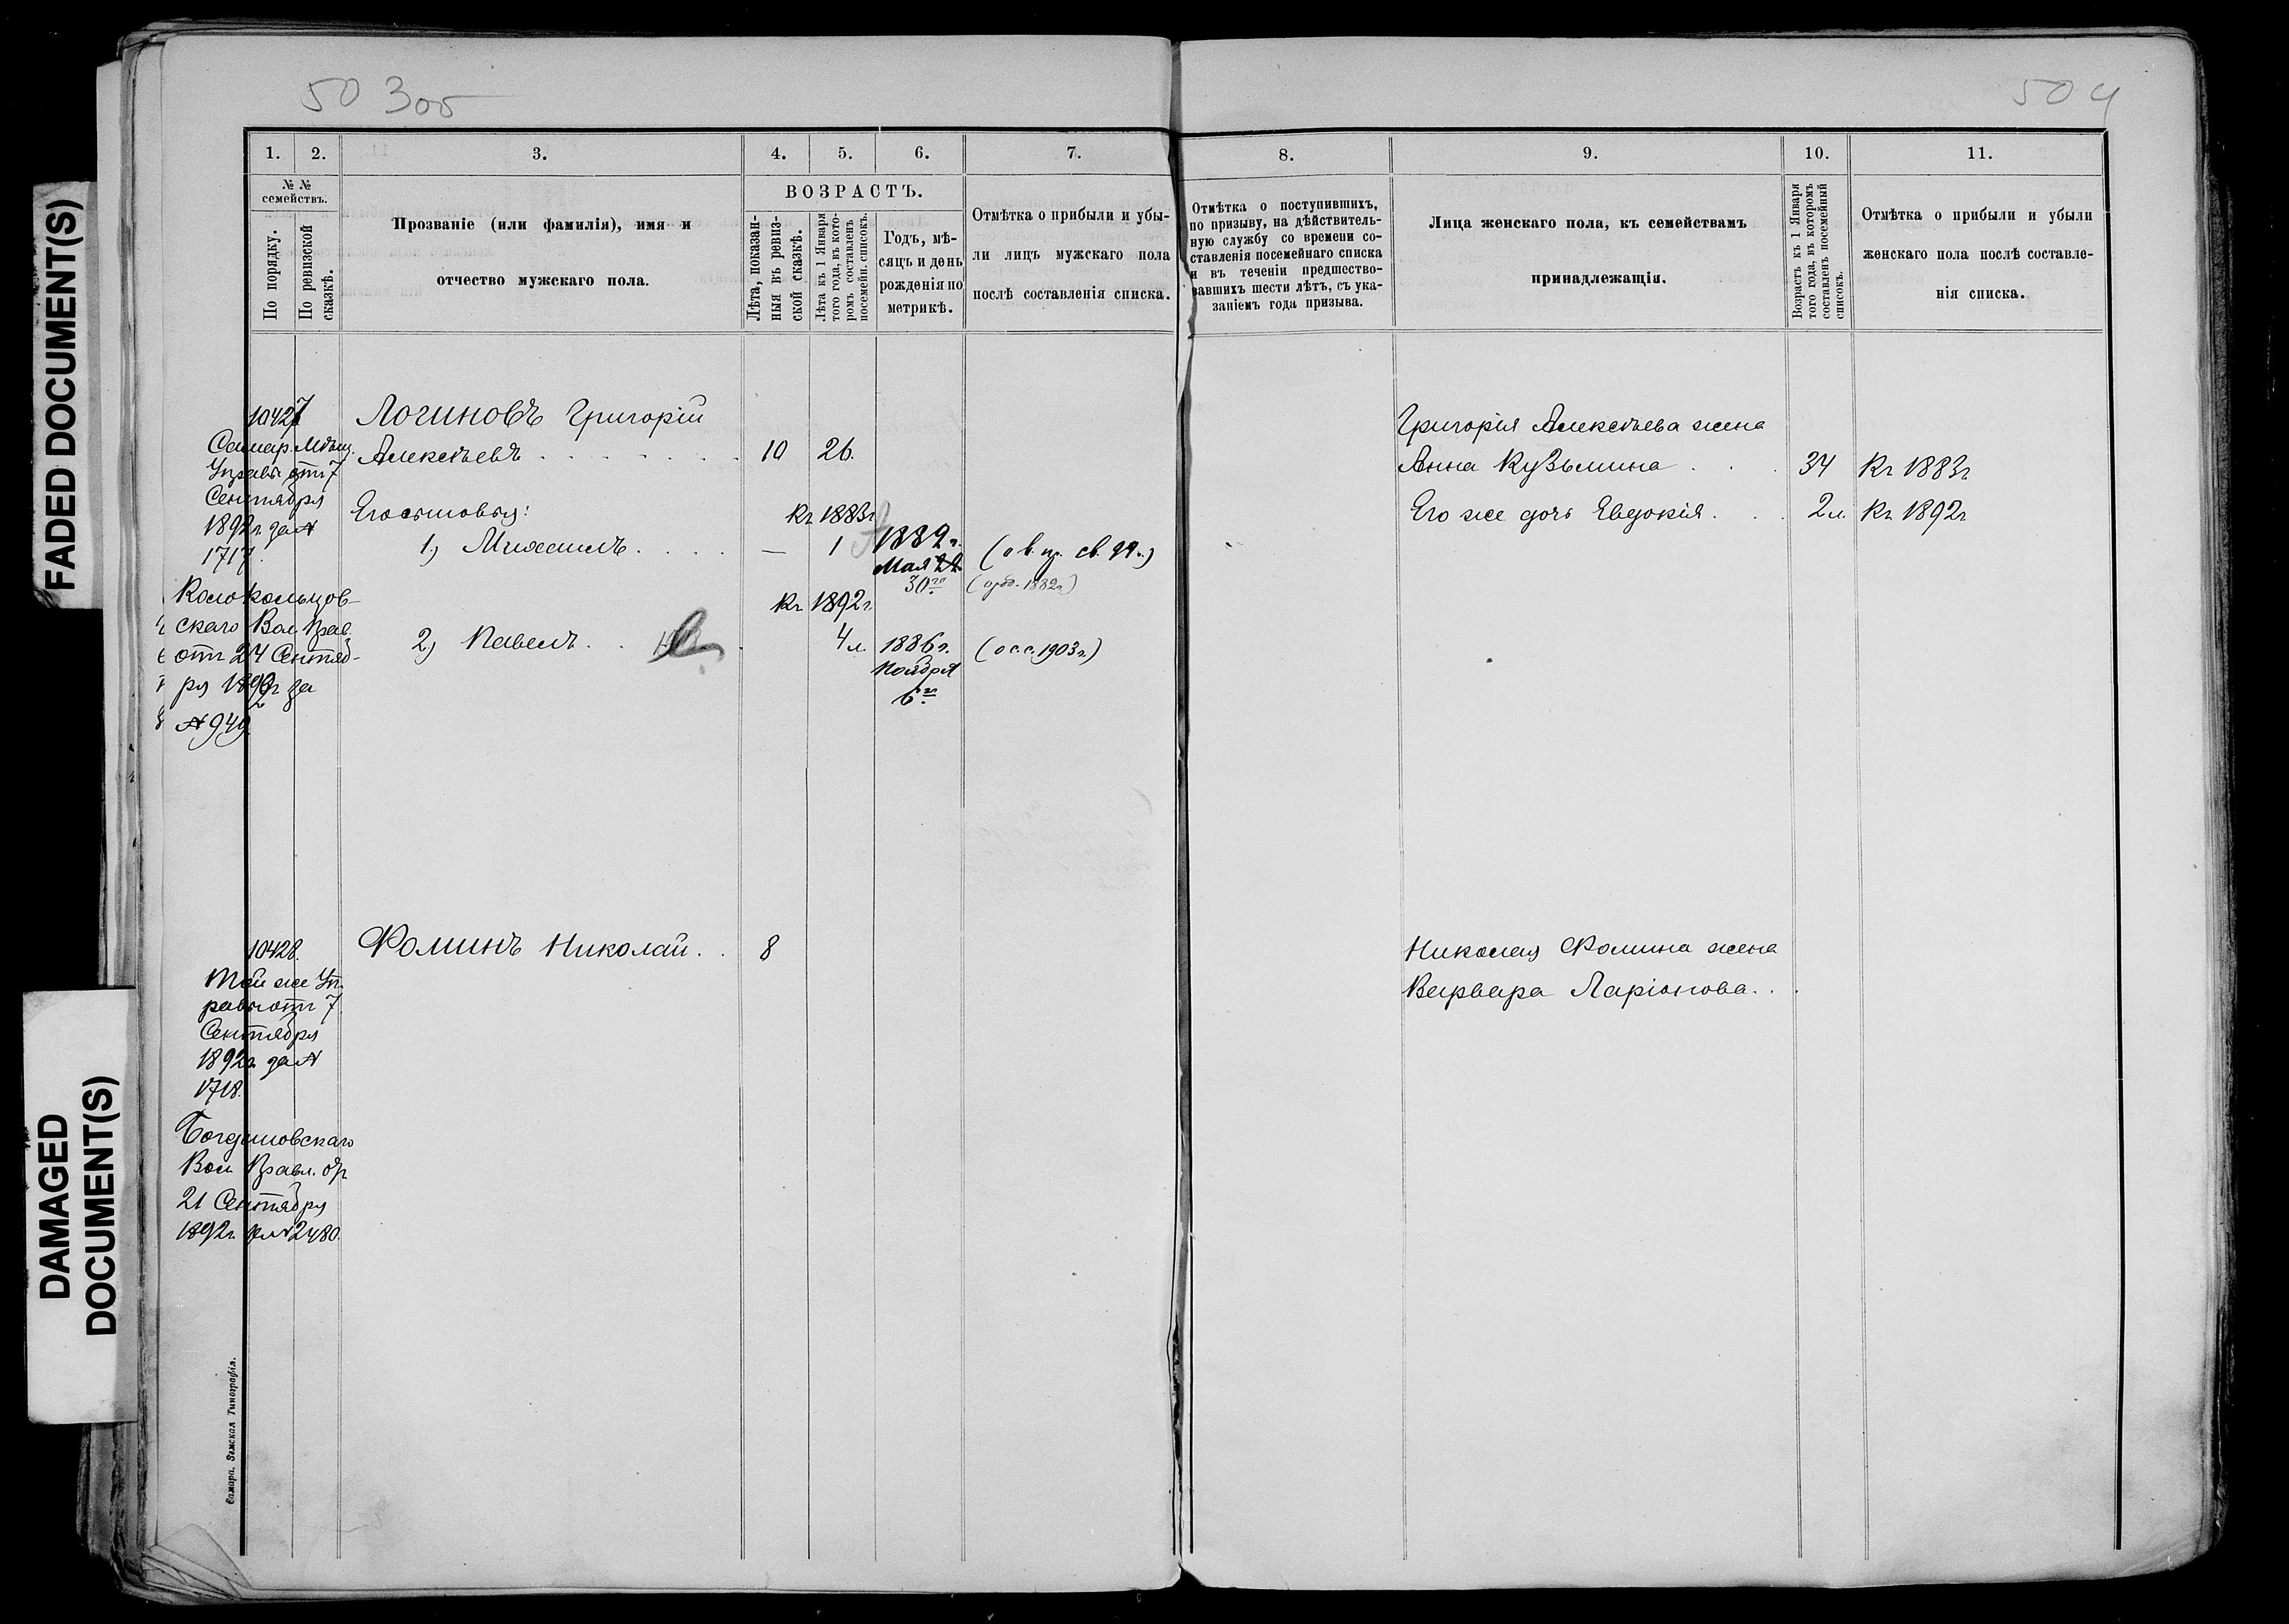 FADED DOCUMENT(S)
DAMAGED
DOCUMENT(S)
50 305
504
1. 2. 3. 4. 5. 6. 7.
№ №
семействъ.
По порядку.
По ревизской
сказкѣ.
Прозваніе (или фамилія), имя и
отчество мужскаго пола.
ВОЗРАСТЪ.
Лѣта, показан-
ныя въ ревиз-
ской сказкѣ.
Лѣта къ 1 Января
того года, въ кото-
ромъ составленъ
посемейн. списокъ.
Годъ, мѣ-
сяцъ и день
рожденія по
метрикѣ.
Отмѣтка о прибыли и убы-
ли лицъ мужскаго пола
послѣ составленія списка.
10427
Самар. Мѣщ.
Управы отъ 7
Сентября
1892г. за №
1717.
Колокольцов-
скаго Вол. Прав.
отъ 24 Сентяб-
ря 1892г за
№ 949
Логиновъ Григорій
Алексѣевъ . . . . . . . 10 26.
Его сыновья: Къ 1883г
1, Михаилъ . . . . — 1 1882г.
Мая
30го
(ст. 1882г)
Къ 1892г.
2, Павелъ . . 4 л. 1886г. (о с.с. 1903г.)
Ноября
6го
10428.
Той же Уп-
равы отъ 7
Сентября
1892г. за №
1718.
Вол. Правл. от
21 Сентября
1892г. за № 2480.
Ѳоминъ Николай . . 8
Самара. Земская Типографія.
8. 9. 10. 11.
Отмѣтка о поступившихъ,
по призыву, на дѣйствитель-
ную службу со времени со-
ставленія посемейнаго списка
и въ теченіи предшество-
вавшихъ шести лѣтъ, съ ука-
заніемъ года призыва.
Лица женскаго пола, къ семействамъ
принадлежащія.
Возрастъ къ 1 Января
того года, въ которомъ
составленъ посемейный
списокъ.
Отмѣтка о прибыли и убыли
женскаго пола послѣ составле-
нія списка.
Григорія Алексѣева жена
Анна Кузьмина . . . 34 Къ 1883г
Его же дочь Евдокія . . . 2 л. Къ 1892г
Николая Ѳомина жена
Варвара Ларіонова . . .